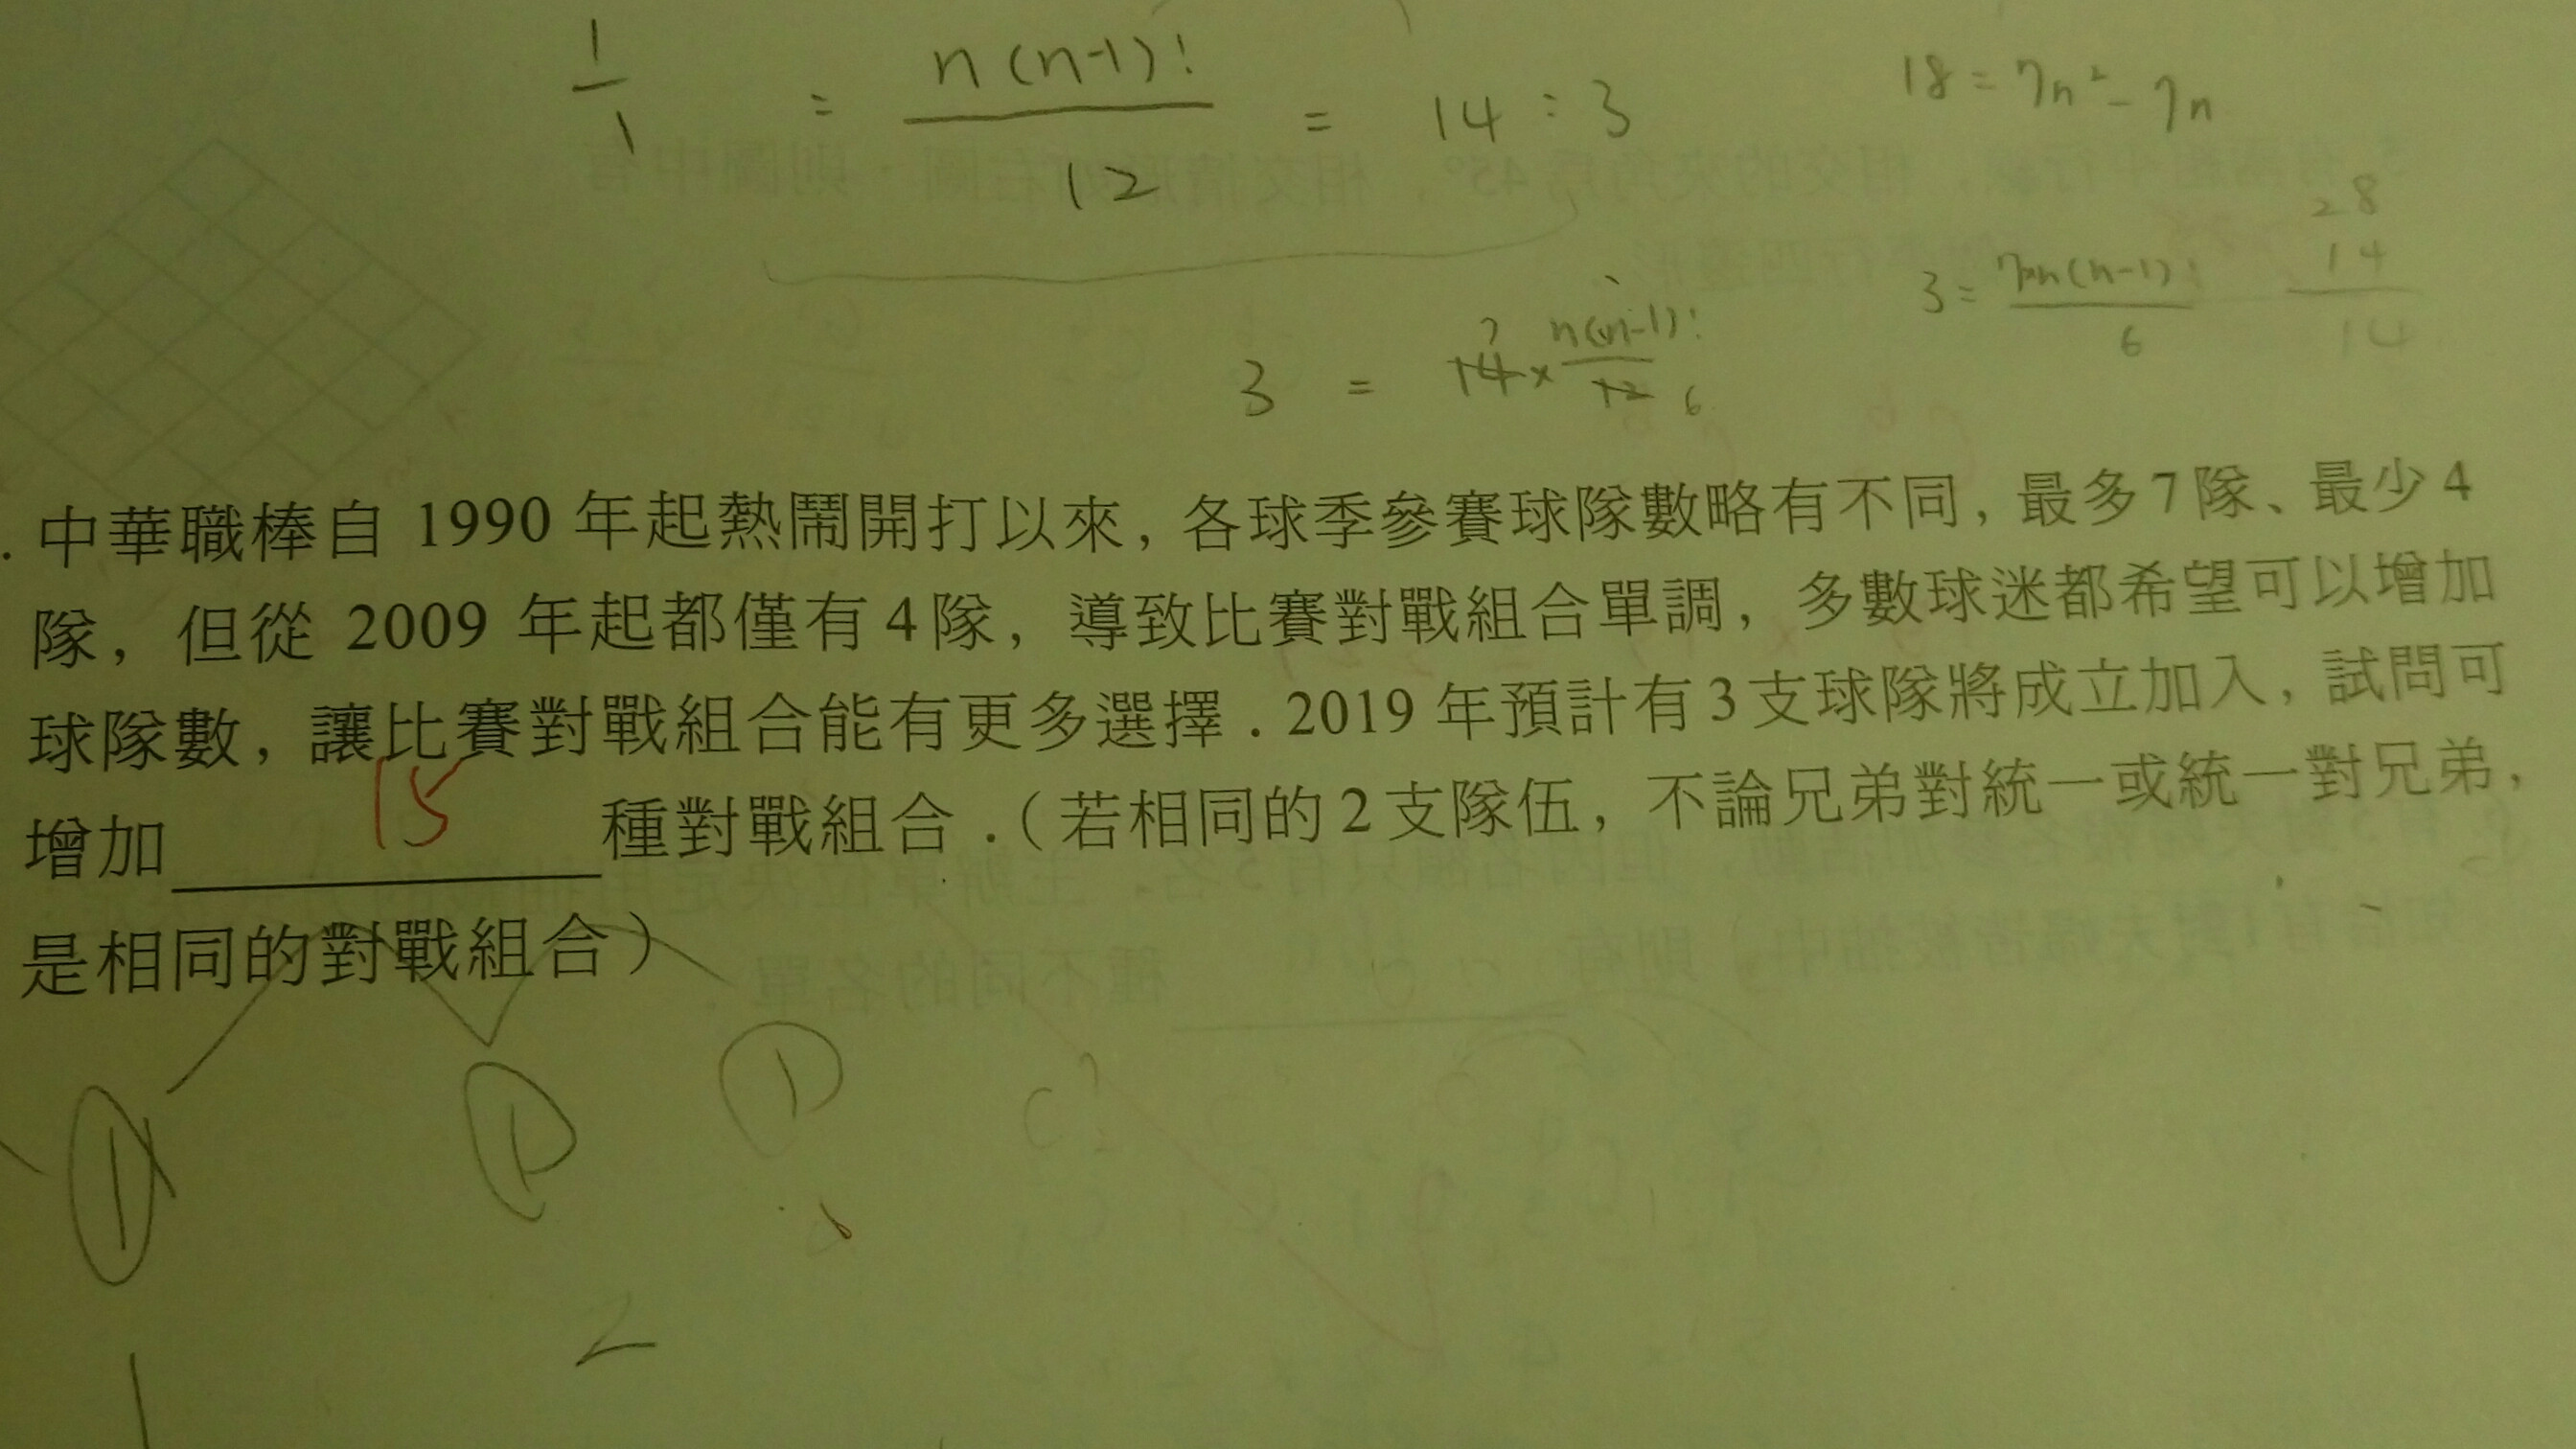 1/1 = n(n-1)!/12 = 14 : 3
18 = 7n² - 7n
28
14
14
3 = 7×n(n-1)!/6
3 = 14 × n(n-1)!/12 7 6
. 中華職棒自 1990 年起熱鬧開打以來, 各球季參賽球隊數略有不同, 最多 7 隊、最少 4
隊, 但從 2009 年起都僅有 4 隊, 導致比賽對戰組合單調, 多數球迷都希望可以增加
球隊數, 讓比賽對戰組合能有更多選擇 . 2019 年預計有 3 支球隊將成立加入, 試問可
增加 15 種對戰組合 .( 若相同的 2 支隊伍, 不論兄弟對統一或統一對兄弟,
是相同的對戰組合 )
1 1 1
2
1